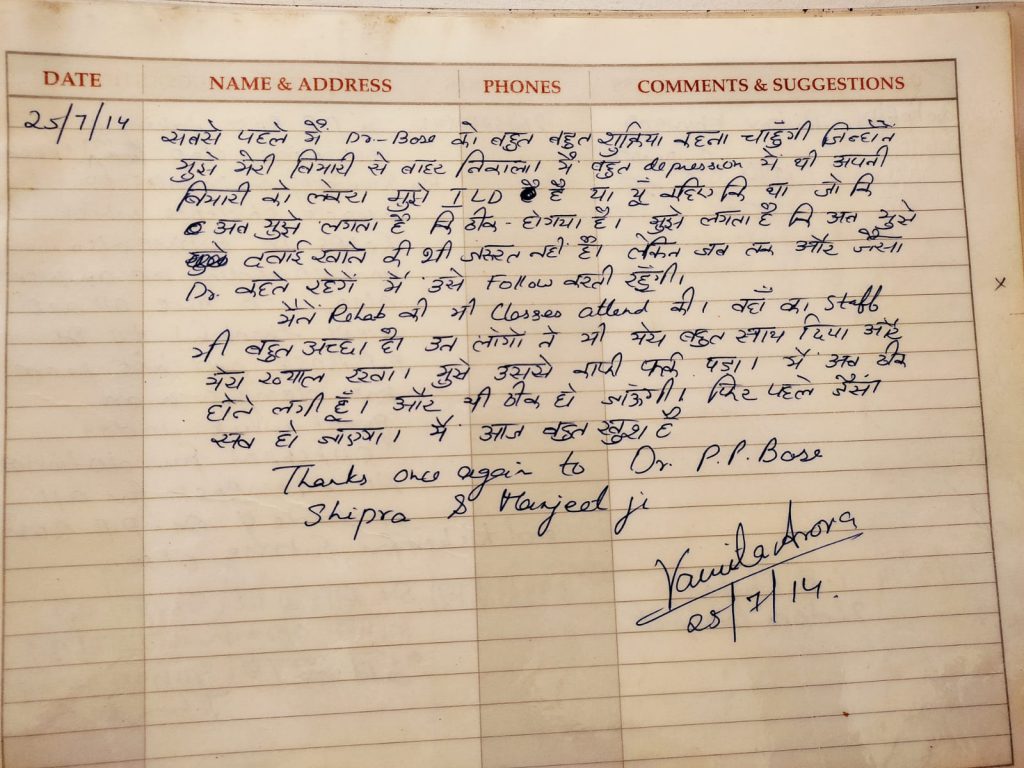 DATE NAME & ADDRESS PHONES COMMENTS & SUGGESTIONS
25/7/14
सबसे पहले मैं Dr. Bose को बहुत बहुत शुक्रिया कहना चाहुँगी जिन्होंने
मुझे मेरी बिमारी से बाहर निकाला। मैं बहुत depression में थी अपनी
बिमारी को लेकर। मुझे ILD है या यूँ कहिए कि था जो कि
अब मुझे लगता है कि ठीक हो गया है। मुझे लगता है कि अब मुझे
दवाई खाने की भी जरूरत नहीं है। लेकिन जब तक और जैसा
Dr. कहते रहेगें मैं उसे Follow करती रहुँगी।
मैनें Rehab की भी Classes attend की। वहाँ का Staff
भी बहुत अच्छा है। उन लोगो ने भी मेरा बहुत साथ दिया और
मेरा ख्याल रखा। मुझे उससे काफी फर्क पड़ा। मैं अब ठीक
होने लगी हूँ। और भी ठीक हो जाँऊगी। फिर पहले जैसा
सब हो जाँएगा। मैं आज बहुत खुश हूँ
Thanks once again to Dr. P.P. Bose
Shipra & Manjeet ji
Arora
25/7/14.
x